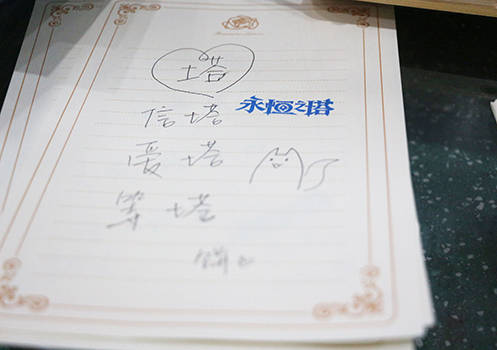 塔
信塔 永恒之塔
爱塔
等塔